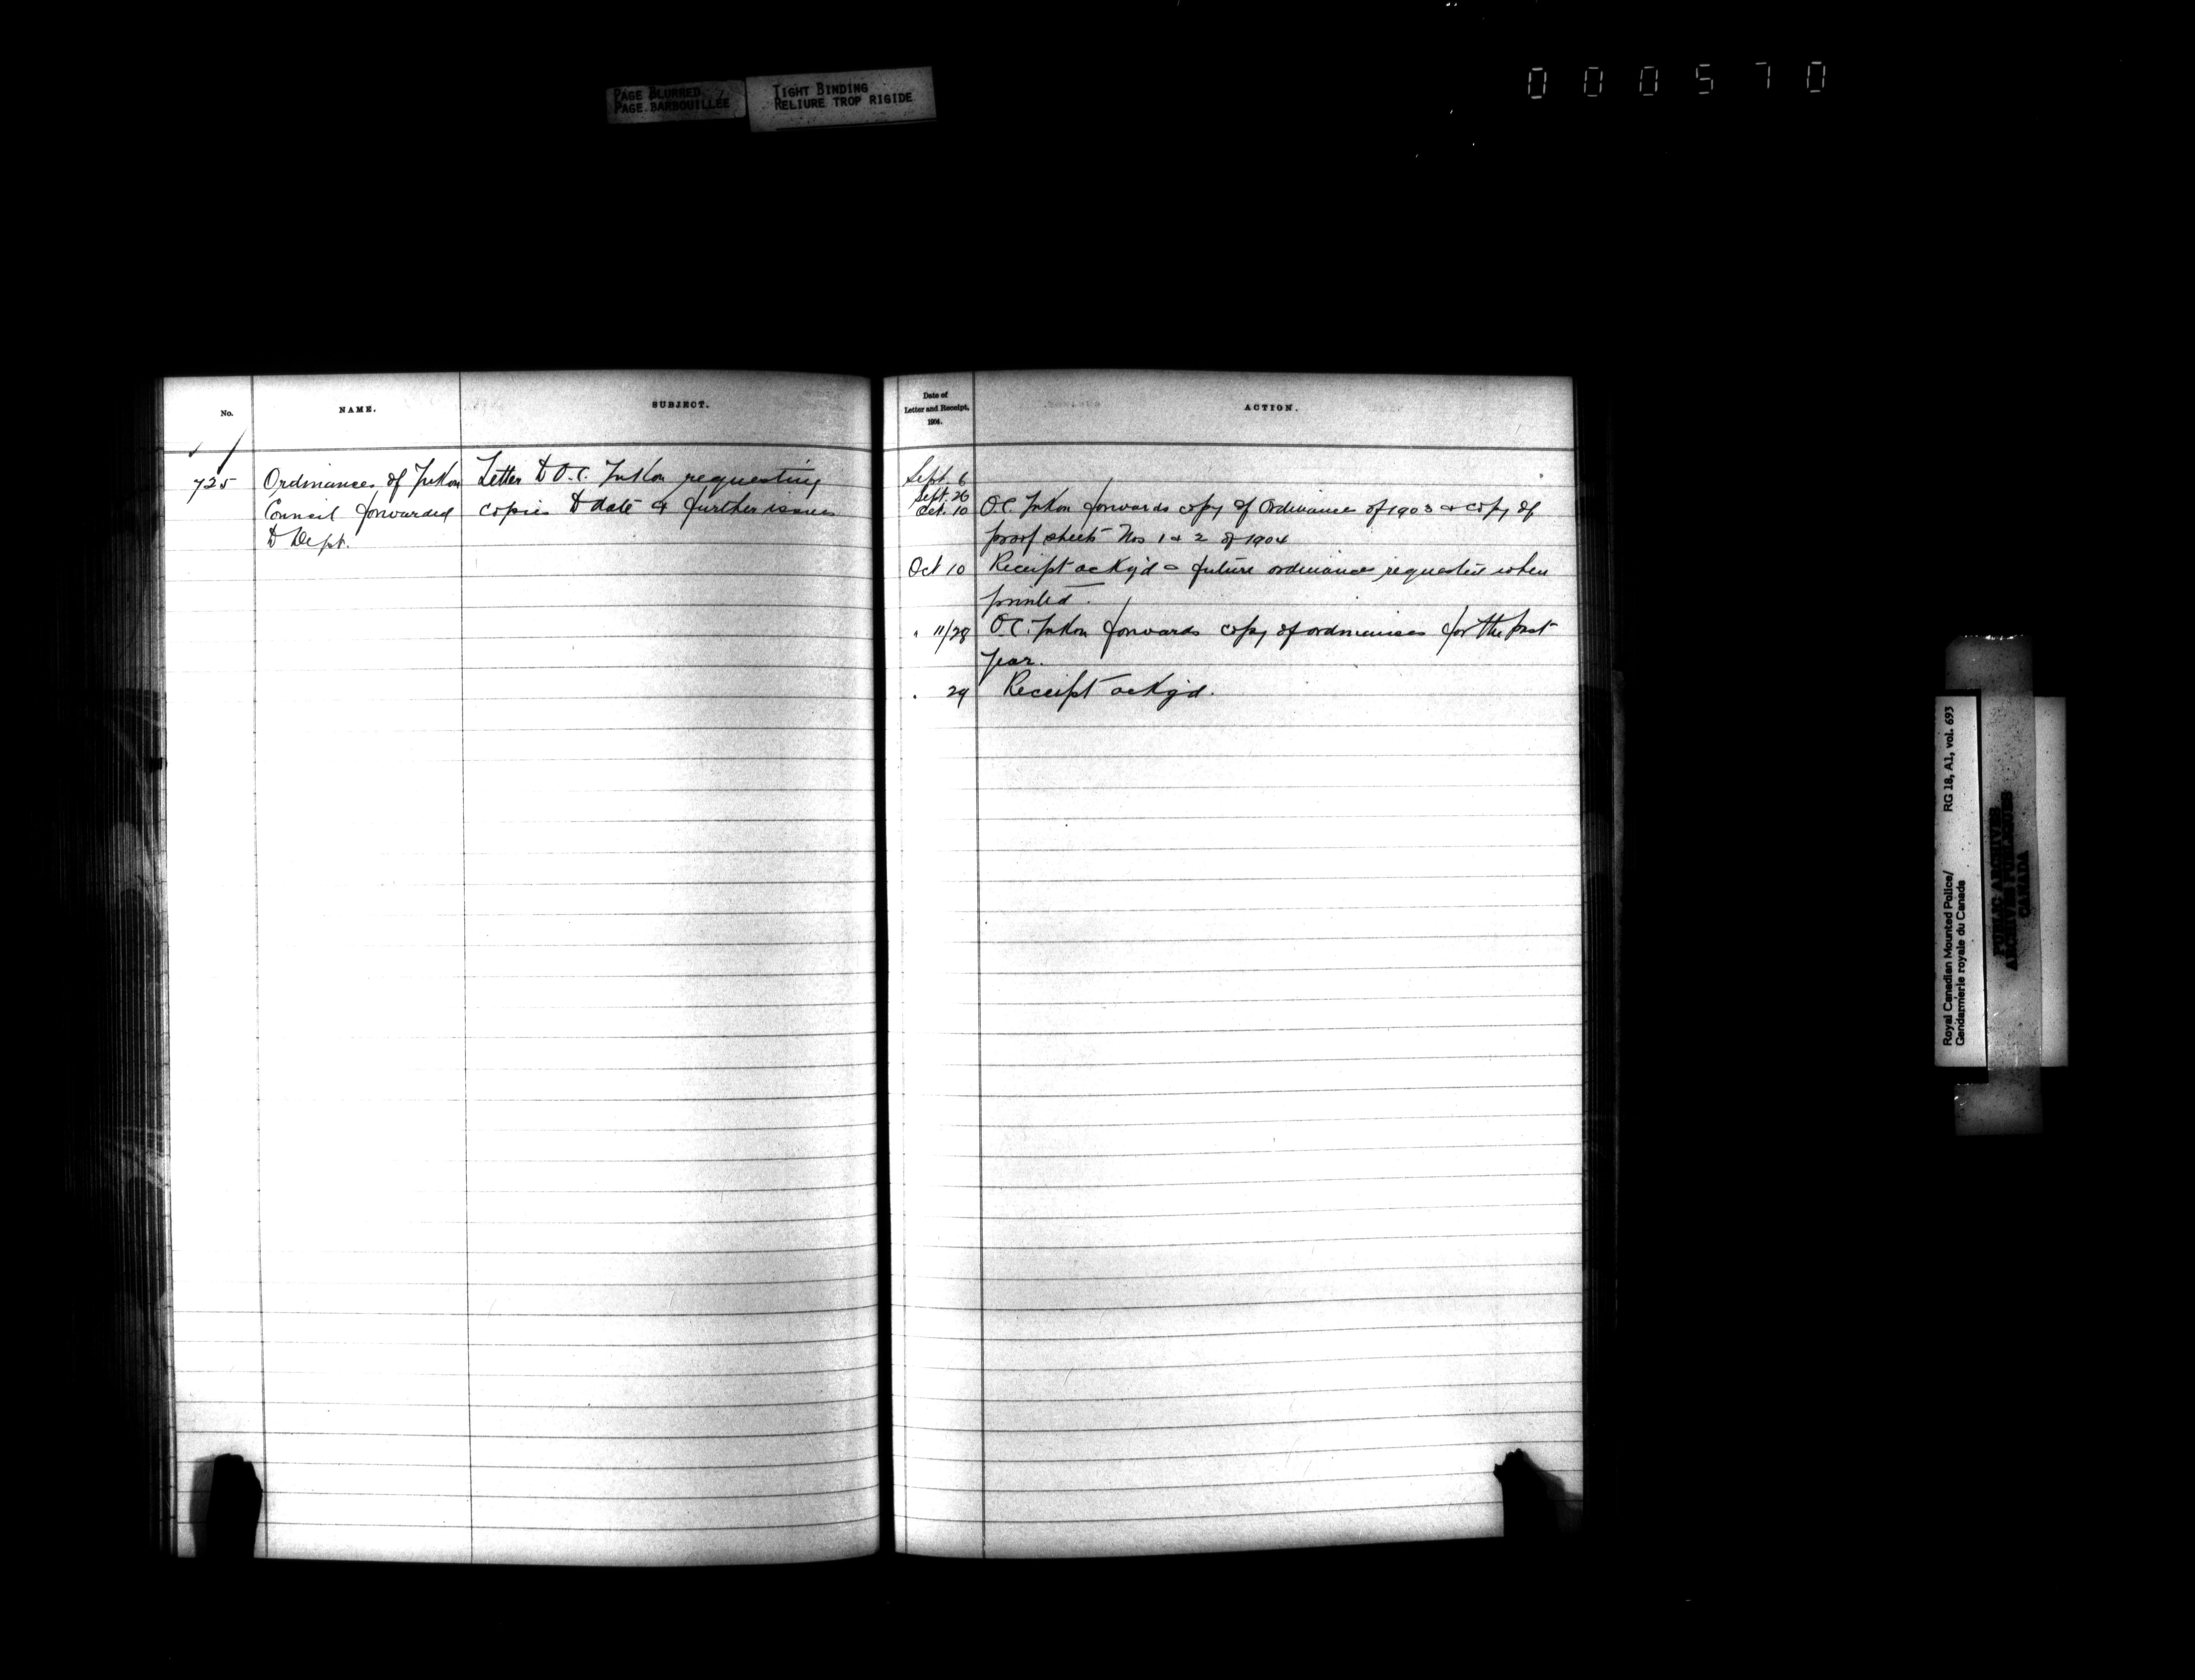 PAGE BLURRED
PAGE BARBOUILLÉE
TIGHT BINDING
RELIURE TROP RIGIDE
000570
No.
NAME.
SUBJECT.
Date of
Letter and Receipt,
1904.
ACTION.
725
Ordinances of Yukon
Council forwarded
to Dept.
Letter to O.C. Yukon requesting
copies to date & further issues
Sept. 6
Sept. 26
Oct. 10 O.C. Yukon forwards copy of Ordinances of 1903 & copy of
proof sheets Nos 1 & 2 of 1904
Oct 10 Receipt ackg'd & future ordinances requested when
printed.
" 11/28 O.C. Yukon forwards copy of ordinances for the past
year.
" 29 Receipt ackg'd.
Royal Canadian Mounted Police/ RG 18, A1, vol. 693
Gendarmerie royale du Canada
PUBLIC ARCHIVES
ARCHIVES PUBLIQUES
CANADA